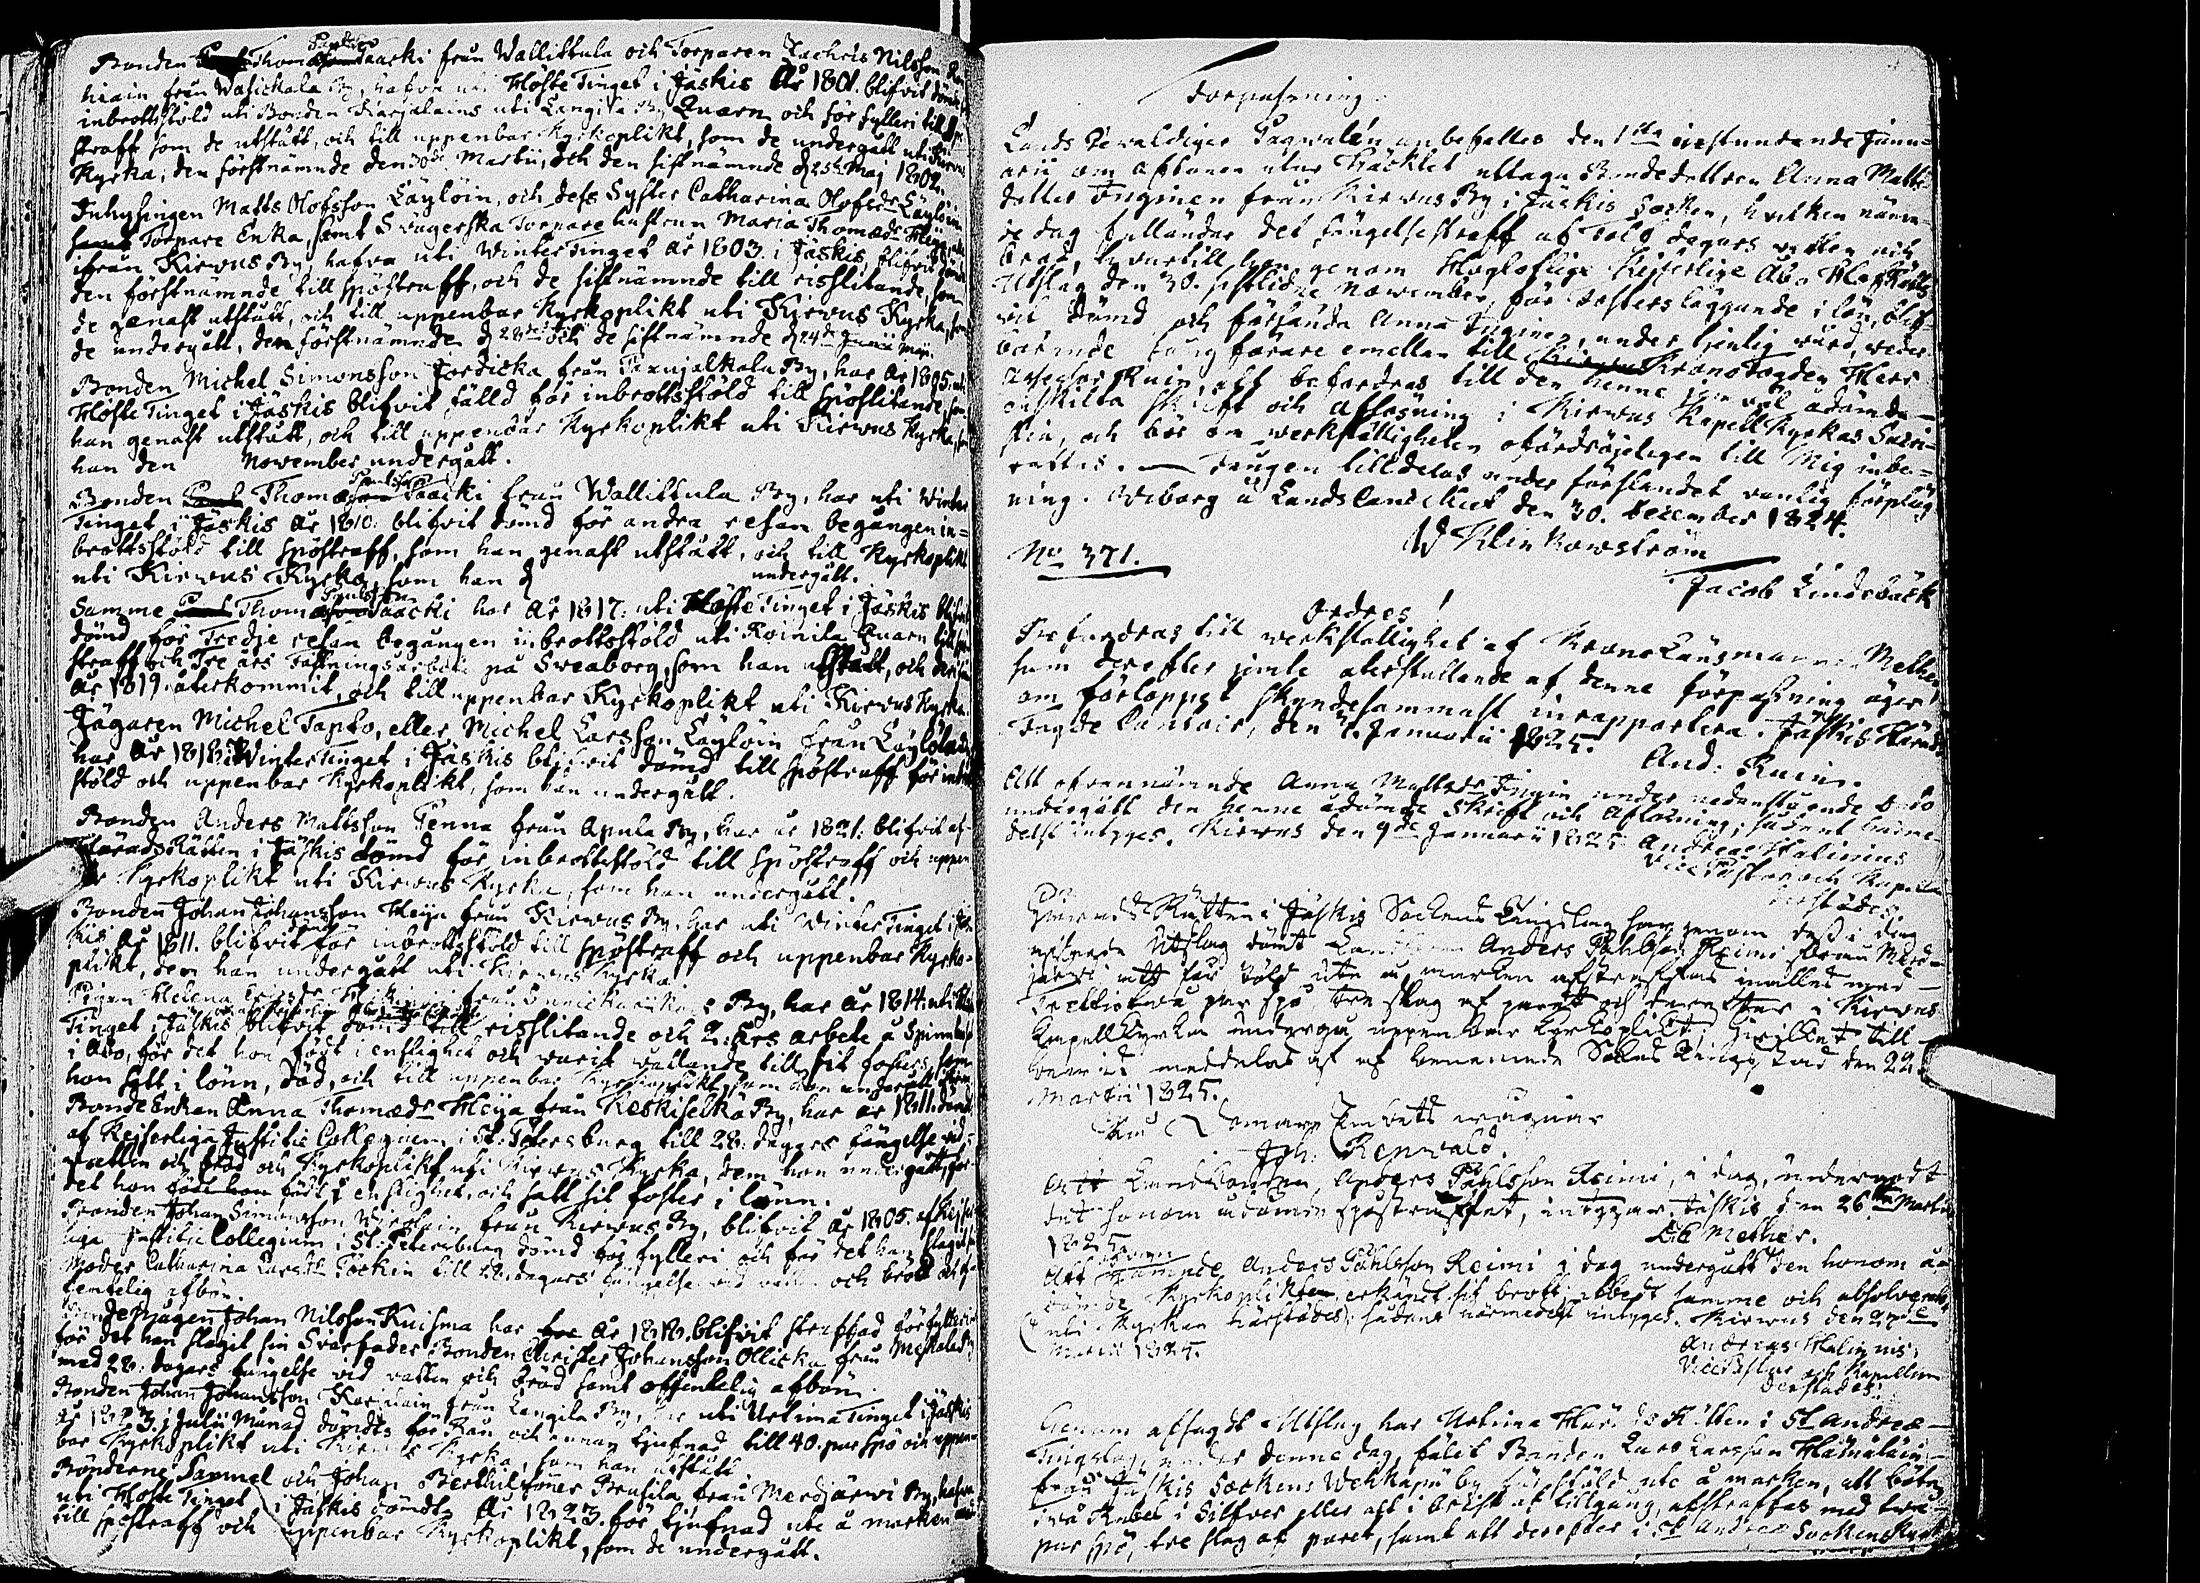 Bonden Thomas Paulsson Paacki från Wallittula och Torparen Zachris Nilsson
hiain från Wasickala By, hafva uti Höste Tinget i Jäskis År 1801. blifvit dömde för
inbrottsstöld uti Bonden Karjalains uti Langila By Quarn och för fylleri till Spö
straff som de utstått, och till uppenbar Kyrkoplikt, som de undergått uti Kirvus
Kyrka, den förstnämnde den 30de Martii, och den sistnämnde d 25te Maj 1802.
Inhysingen Matts Olofsson Läylöin, och dess Syster Catharina Olofsdr Läylöin
Torpare Enka, samt Swägerska Torpare hustrun Maria Thomædr Heija, alla
ifrån Kirwus By, hafva uti WinterTinget År 1803. i Jäskis blifvit dömde
den förstnämnde till spöstraff, och de sistnämnde till risslitande, som
de genast utstått, och till uppenbar Kyrkoplikt uti Kirwus Kyrka, som
de undergått, den förstnämnde d 28de och de sistnämnde d 24de Maji.
Bonden Michel Simonsson Jordicka från Taxujalkala By, har År 1805. uti
Höste Tinget i Jäskis blifvit fälld för inbrottsstöld till spöslitande, som
han genast utstått, och till uppenbar Kyrkoplikt uti Kirwus Kyrka, som
han den November undergått.
Bonden Thomas Paulsson Paacki från Wallittula By, har uti Winter
Tinget i Jäskis År 1810. blifvit dömd för andra resan begången in=
brottsstöld till spöstraff, som han genast utstått, och till Kyrkoplikt
uti Kirwus Kyrka, som han d undergått.
Samme Thomas Paulsson Paacki har År 1817. uti Höste Tinget i Jäskis blifvit
dömd för Tredje resan begången inbrottsstöld uti Koinila Quarn till spö
straff och Tre års Fästningsarbete på Sweaborg, som han utstått, och derifrån
År 1819. återkommit, och till uppenbar Kyrkoplikt uti Kirwus Kyrka.
Jägaren Michel Tapto, eller Michel Larsson Läylöin från Läylölä
har År 1818. i WinterTinget i Jäskis blifvit dömd till spöstraff för inbrotts
stöld och uppenbar Kyrkoplikt, som han undergått.
Bonden Anders Mattsson Penna från Apula By, har år 1821. blifvit af
HäradsRätten i Jäskis dömd för inbrottsstöld till spöstraff och uppen
bar Kyrkoplikt uti Kirwus Kyrka, som han undergått.
Bonden Johan Johansson Heija från Kirwus By, har uti WinterTinget i Jäs
kis År 1811. blifvit dömd för inbrottsstöld till spöstraff och uppenbar Kyrko=
plikt, den han undergått uti Kirwus Kyrka.
Pigan Helena Ericsdr från By, har År 1814. uti Höste
Tinget i Jäskis blifvit dömd till risslitande och 2. års arbete å Spinnhuset
i Åbo, för det hon födt i enslighet och warit wållande till sit fosters, som
hon fött i lönn, död, och till uppenbar Kyrkoplikt, som hon undergått.
BondeEnkan Anna Thomædr Heija från Keskiselkä By, har år 1811. dömd
af Kejserliga Justitie Collegium i St. Petersburg till 28. dagars fängelse vid
vatten och bröd och Kyrkoplikt uti Kirwus Kyrka, dem hon undergått, för
det hon födt i enslighet, och satt sit foster i lönn.
Bonden Johan Simonsson från Kirwus By, blifvit år 1805. af Kejser
liga Justitie Collegium i St. Petersburg dömd för fylleri och för det han slagit sin
Moder Catharina Larsdr Pöckin till 28. dagars fängelse vid vatten och bröd och of
fentelig afbön.
Bondemågen Johan Nilsson Kuisma har År 1818. blifvit straffad för fylleri
för det han slagit sin Svärfader Bonden Christer Johansson Ollicka från By
med 28. dagars fängelse vid vatten och bröd samt offentelig afbön.
Bonden Johan Johansson Karjalain från Langila By, har uti Urtima Tinget i Jäskis
År 1823. i Julii Månad dömdts för Rån och annan tjufnad till 40. par spö och uppen=
bar Kyrkoplikt uti Kirwus Kyrka, som han utstått
Bönderne Samuel och Johan Berthilssöner Brusila från Merdjärwi By, hafva
uti Höste Tinget i Jäskis dömdts År 1823. för tjufnad ute å marken
till spöstraff och uppenbar Kyrkoplikt, som de undergått.
Förpassning.
Lands Gevaldiger Pagwalén anbefalles den 1sta instundande Janu=
arii om aftonen utur Häcktet uttaga Bondedottren Anna Matts
dotter Inginen från Kirwus By i Jäskis Socken, hvilken nämn=
de dag fulländar det fängelsestraff af Tolf dagars vatten och
bröd, hvartill hon genom Högloflige Kejserlige Åbo HofRätts
Utslag den 30. sistlidne November, för fosters läggande i lön, blif=
vit dömd och försända Anna Inginen, under tjenlig wård, weder=
börande fång förare emellan till KronoFogden Herr
Assessor Ruin, att befordras till den henne jemväl ådömde
enskilta skrift och aflösning i Kirwus Kapell Kyrkas Sacri=
stia, och bör om werkställigheten ofördröjeligen till Mig inbe=
rättas. — Fången tilldelas under förståndet vanlig förpläg=
ning. Wiborg å Landscancelliet den 30. December 1824.
W Klinkowström
No 371.
Jacob Lindebäck
Ordres!
Befordras till werkställighet af KronoLänsmannen Mether
som derefter jemte återställande af denne förpassning äger
om förloppet skyndesammast inrapportera. Jäskis Härads
Fogde Contoir, den 7. Januarii 1825.
And. Ruin.
Att ofvannämnde Anna Mattsdr Ingin under nedanstående dato
undergått den henne ådömde Skrift och Aflösning; sådant härme
delst intyges. Kirwus den 9de Januarii 1825. Andreas Halinius
Vice Pastor och Kapellan
derstädes.
Härads Rätten i Jäskis Sockens Tingslag har genom dess i dag
Utslag dömt Anders Påhlsson Reimi från Merd=
järwi att för stöld ute å marken afstraffas med
par spö tre slag af paret och derefter i Kirwus
Kapell Kyrka undergå uppenbar Kyrkoplikt, hvilket till
bevis meddelas af Sockens Tingsstad den 22.
Martii 1825.
På Domare Embets vägnar
Joh. Renvald.
Att Landbonden Anders Påhlsson Reimi, i dag, undergått
det honom ådömde spöstraffet, intygar. Jäskis den 26te Martii
1825. Mether.
Att ofvannämnde Anders Påhlsson Reimi i dag undergått den honom å=
dömde Kyrkoplikten, erkändt sit brott, afbedt samme och absolverats
uti Kyrkan härstädes; sådant härmedelst intyges. Kirwus den 27de
Martii 1825.
Andreas Halinius,
Vice Pastor och Kapellan
derstädes.
Genom afsagdt Utslag har Urtima Härads Rätten i St Andreæ
Tingslag, under denne dag, fält Bonden Lars Larsson Hämäläin
från Jäskis Sockens Wehkapu by för stöld ute å marken, att böta
två Rubel i Silfver eller att i brist af tillgång, afstraffas med två
par spö, tre slag af paret, samt att derefter i St Andreæ Sockens Kyrka